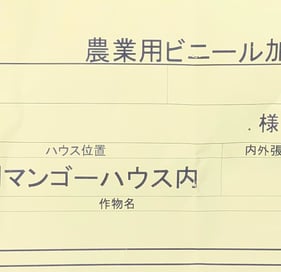 農業用ビニール加
様
ハウス位置 内外張
マンゴーハウス内
作物名